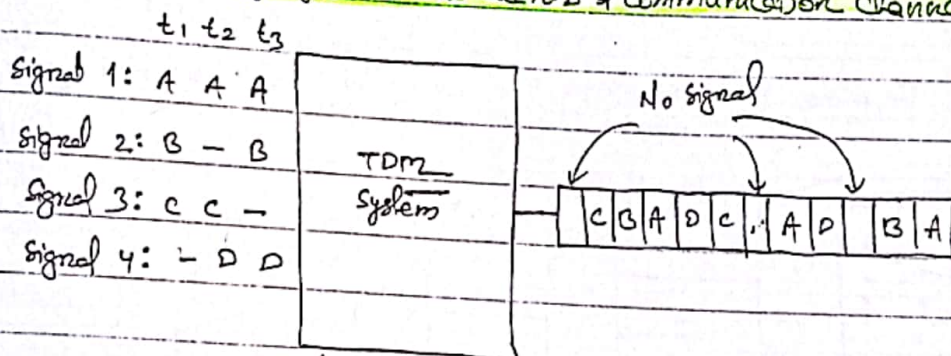 & communication channe
t1 t2 t3
Signal 1: A A A
Signal 2: B - B
Signal 3: C C -
Signal 4: - D D
TDM
System
No signal
C B A D C A D B A